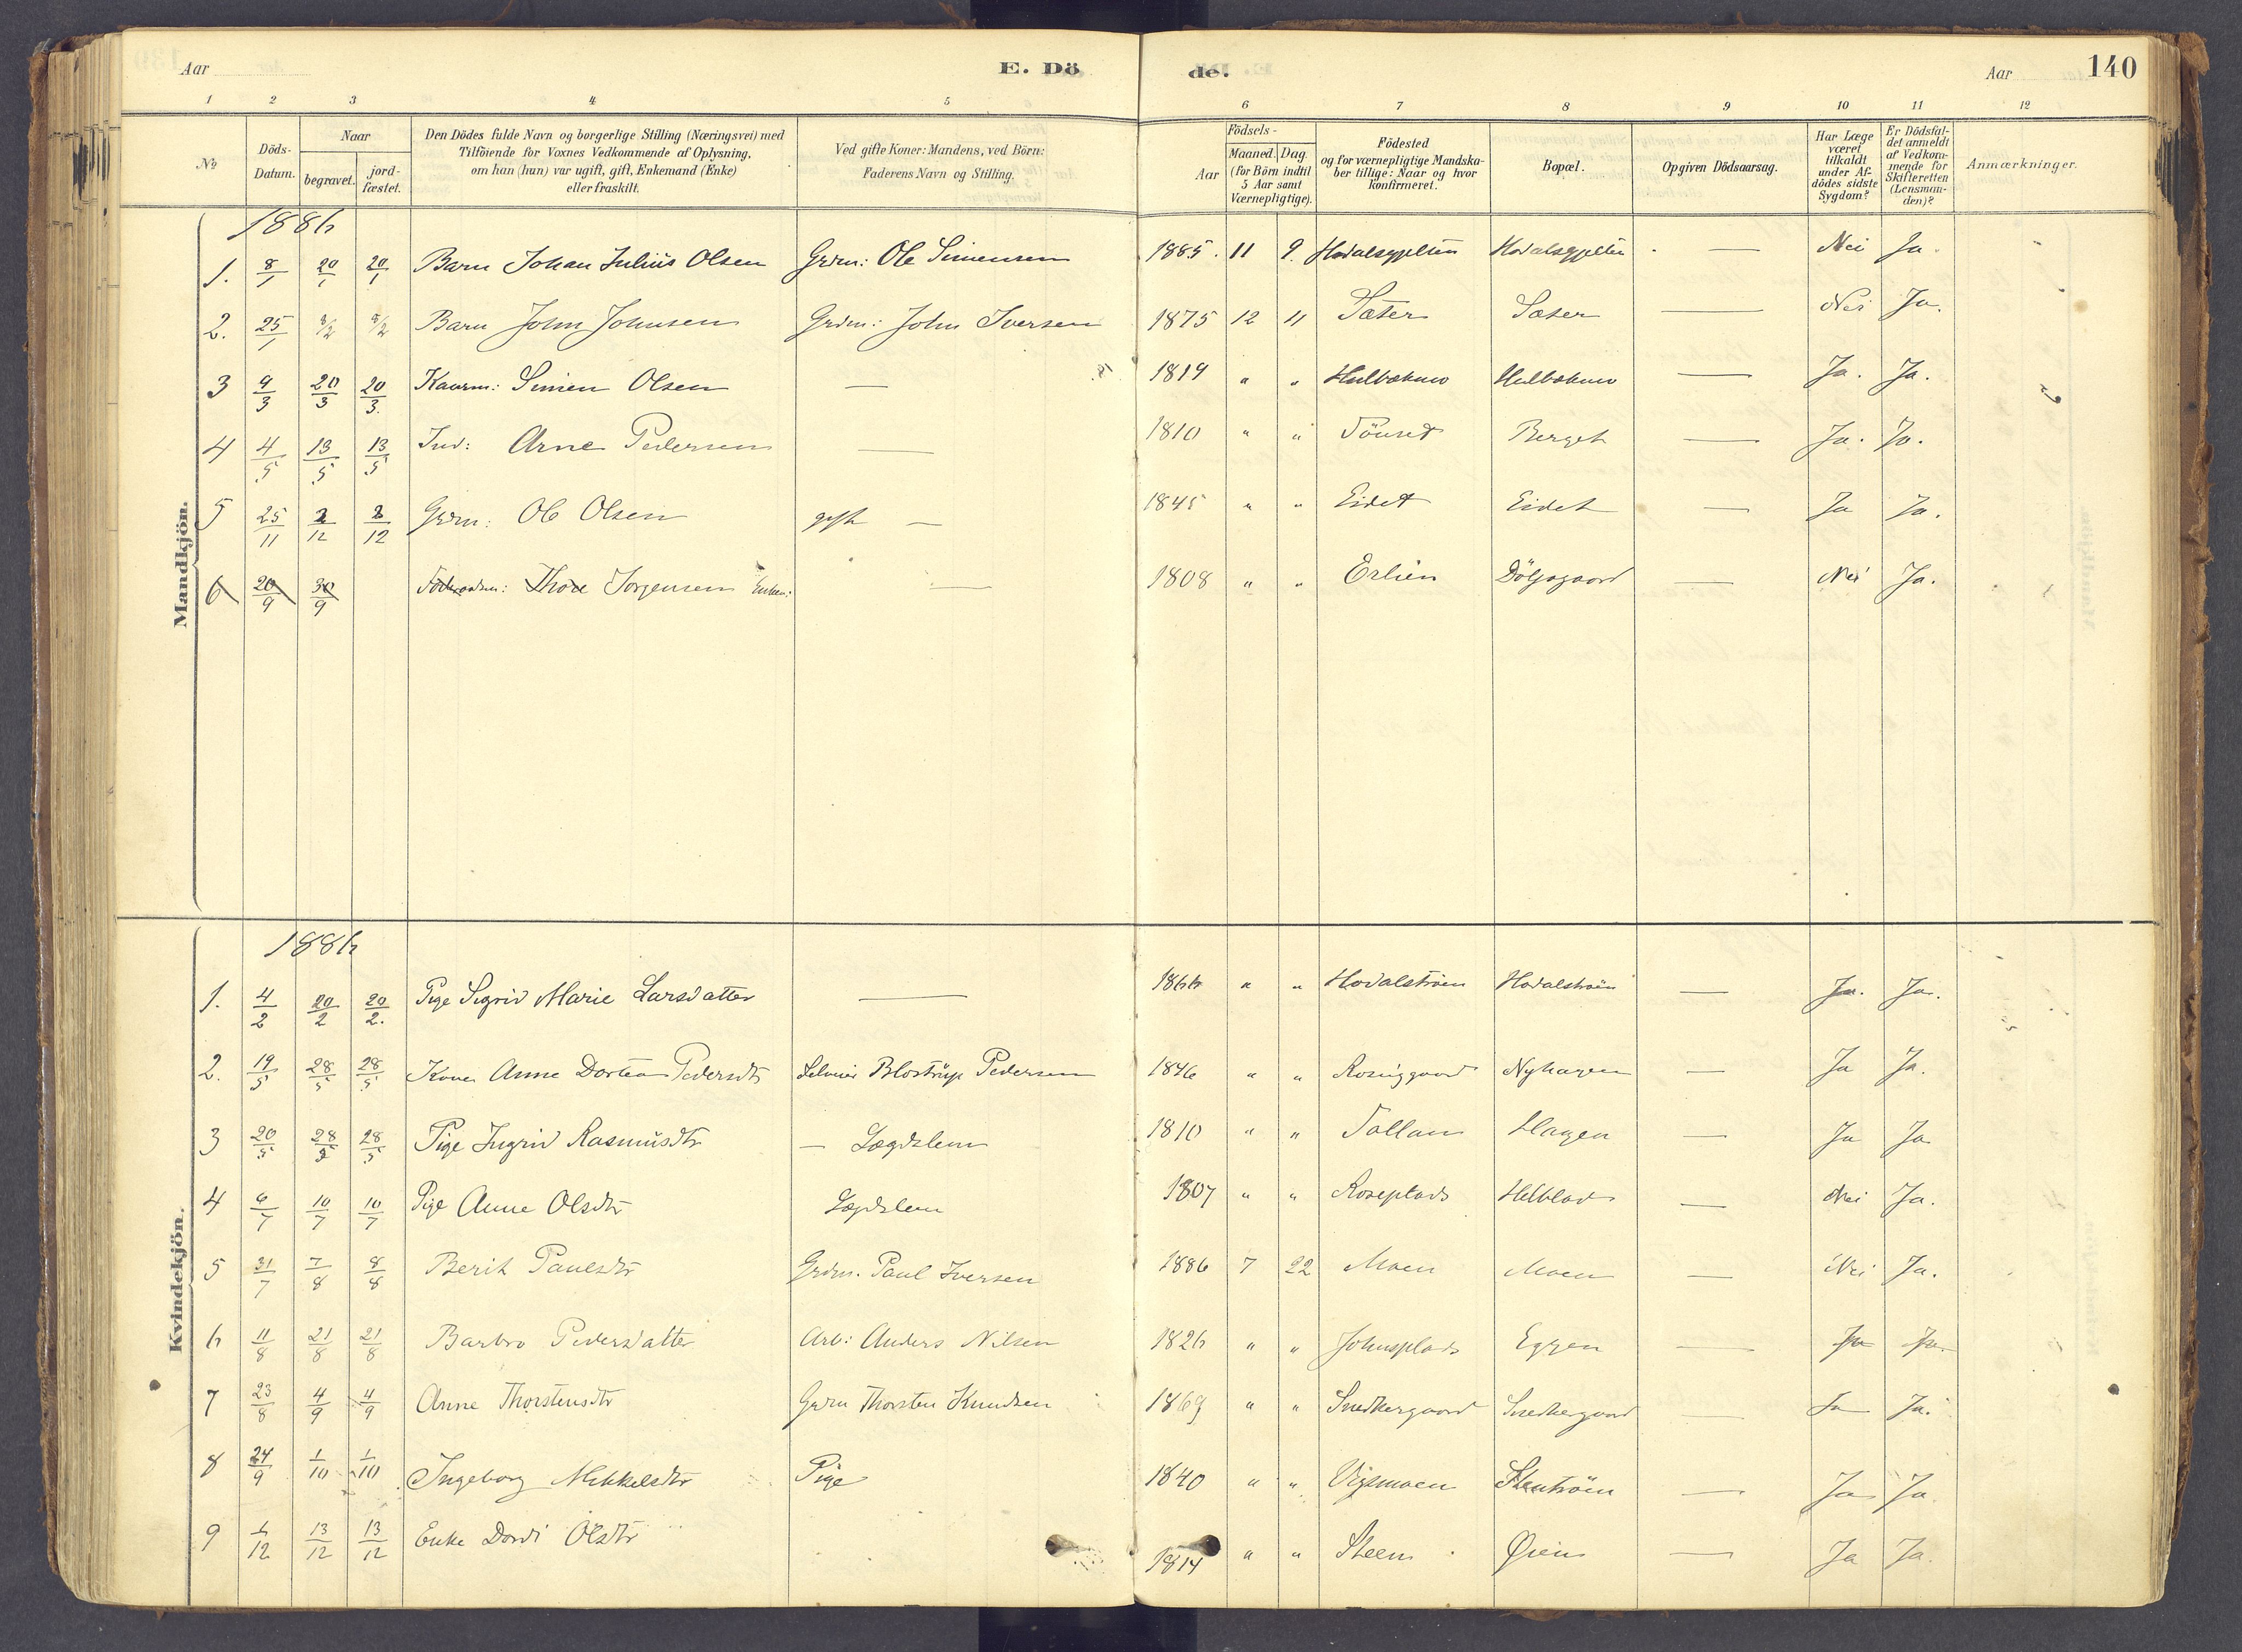 Aar E. Dö de. Aar 140
1 2 3 4 5 6 7 8 9 10 11 12
No Döds-Datum. Naar begravet. jord-fæstet. Den Dödes fulde Navn og borgerlige Stilling (Næringsvei) med Tilföiende for Voxnes Vedkommende af Oplysning, om han (hun) var ugift, gift, Enkemand (Enke) eller fraskilt. Ved gifte Koner: Mandens, ved Börn: Faderens Navn og Stilling. Födsels- Aar Maaned. Dag. (for Börn indtil 5 Aar samt Værnepligtige). Födested og for værnepligtige Mandskaber tillige: Naar og hvor konfirmeret. Bopæl. Opgiven Dödsaarsag. Har Læge været tilkaldt under Afdödes sidste Sygdom? Er Dödsfaldet anmeldt af Vedkommende for Skifteretten (Lensmanden)? Anmærkninger.
Mandkjön.
1886
1. 8/1 20/1 20/1 Barn Johan Julius Olsen Grdm: Ole Simensen 1885. 11 9. Hodalsgjelten Hodalsgjelten — Nei Ja.
2. 25/1 8/2 8/2 Barn John Johnsen Grdm: John Iversen 1875 12 11 Sæter Sæter — Nei Ja.
3 9/3 20/3 20/3. Simen Olsen — 1819 " " — Ja. Ja.
4 4/5 13/5 13/5 Ind: Arne Pedersen — 1810 " " Tönset Berget — Ja. Ja.
5 25/11 2/12 2/12 Grdm: Ole Olsen gift — 1845 " " Eidet Eidet — Ja Ja.
6 20/9 30/9 Thore Jorgensen Enkem: — 1808 " " Erlien Döljsgaard — Nei Ja.
Kvindekjön.
1886
1. 4/2 20/2 20/2. Pige Sigrid Marie Larsdatter — 1866 " " Hodalströen Hodalströen — Ja. Ja.
2. 19/5 28/5 28/5 Kone Anne Dortea Pedersdtr Blostrup Pedersen 1846 " " Nyhagen — Ja Ja.
3 20/5 28/5 28/5 Pige Ingrid Rasmusdtr — Lægdslem 1810 " " Tollan Hagen — Ja Ja
4 6/7 10/7 10/7 Pige Anne Olsdtr Lægdslem 1807 " " Roseplads — Nei Ja.
5 31/7 7/8 8/8 Berit Paulsdtr Grdm. Paul Iversen 1886 7 22 Moen Moen — Nei Ja.
6 11/8 21/8 21/8 Barbro Pedersdatter Arb: Anders Nilsen 1826 " " Johnsplads Eggen — Ja Ja.
7 23/8 4/9 4/9 Anne Thorstensdtr Grdm Thorsten Knudsen 1869 " " Snedkergaard Snedkergaard — Ja Ja.
8 24/9 1/10 1/10 Ingeborg Mikkelsdtr Pige 1840 " " Vigsmoen — Ja Ja
9 6/12 13/12 13/12 Enke Dordi Olsdtr 1814 " " Steen Øien — Ja Ja.